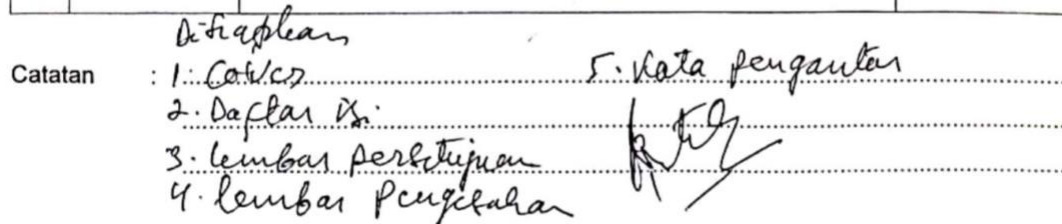 Disiapkan
Catatan : 1. Cover
2. Daftar isi
3. lembar persetujuan
4. lembar pengesahan
5. Kata pengantar